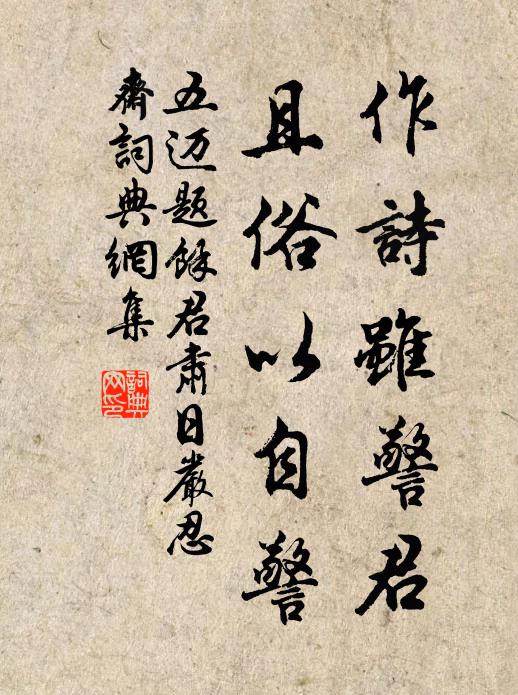 作詩雖警君
且俗以自警
五迈题餘君肅日嚴忍
齋詞典網集
詞典
网印